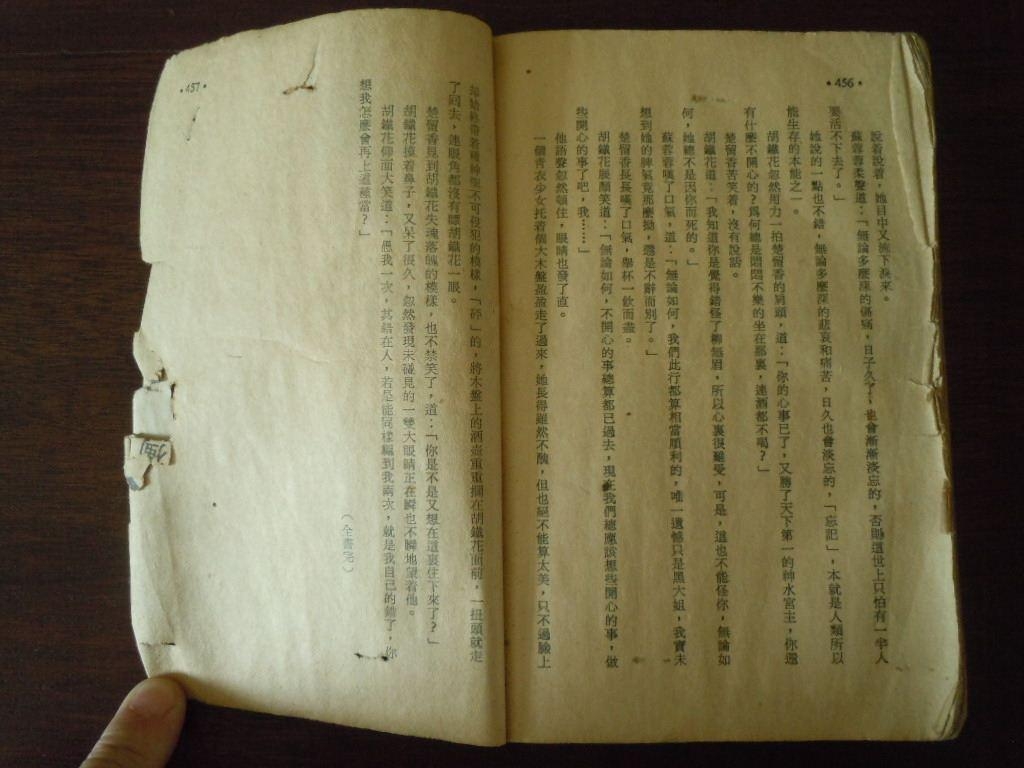 •456•
說着說着，她目中又流下淚來。
蘇蓉蓉柔聲道：「無論多麼深的傷痛，日子久了，也會漸漸淡忘的，否則這世上只怕有一半人
要活不下去了。」
她說的一點也不錯，無論多麼深的悲哀和痛苦，日久也會淡忘的，「忘記」，本就是人類所以
能生存的本能之一。
胡鐵花忽然用力一拍楚留香的肩頭，道：「你的心事已了，又勝了天下第一的神水宮主，你還
有什麼不開心的？爲何總是悶悶不樂的坐在那裏，連酒都不喝？」
楚留香苦笑着，沒有說話。
胡鐵花道：「我知道你是覺得錯怪了柳無眉，所以心裏很難受，可是，這也不能怪你，無論如
何，她總不是因你而死的。」
蘇蓉蓉嘆了口氣，道：「無論如何，我們此行都算相當順利的，唯一遺憾只是黑大姐，我實未
想到她的脾氣竟那麼拗，還是不辭而別了。」
楚留香長長嘆了口氣，舉杯一飲而盡。
胡鐵花展顏笑道：「無論如何，不開心的事總算都已過去，現在我們總應該想些開心的事，做
些開心的事了吧，我……」
他語聲忽然頓住，眼睛也發了直。
一個青衣少女托着個大木盤盈盈走了過來，她長得雖然不醜，但也絕不能算太美，只不過臉上
•457•
却始終帶着種神聖不可侵犯的模樣，「砰」的，將木盤上的酒壺重重擱在胡鐵花面前，一扭頭就走
了回去，連眼角都沒有瞟胡鐵花一眼。
楚留香見到胡鐵花失魂落魄的模樣，也不禁笑了，道：「你是不是又想在這裏住下來了？」
胡鐵花摸着鼻子，又呆了很久，忽然發現未碰見的一雙大眼睛正在瞬也不瞬地望着他。
胡鐵花仰面大笑道：「愚我一次，其錯在人，若是能同樣騙到我兩次，就是我自己的錯了，你
想我怎麼會再上這種當？」
（全書完）